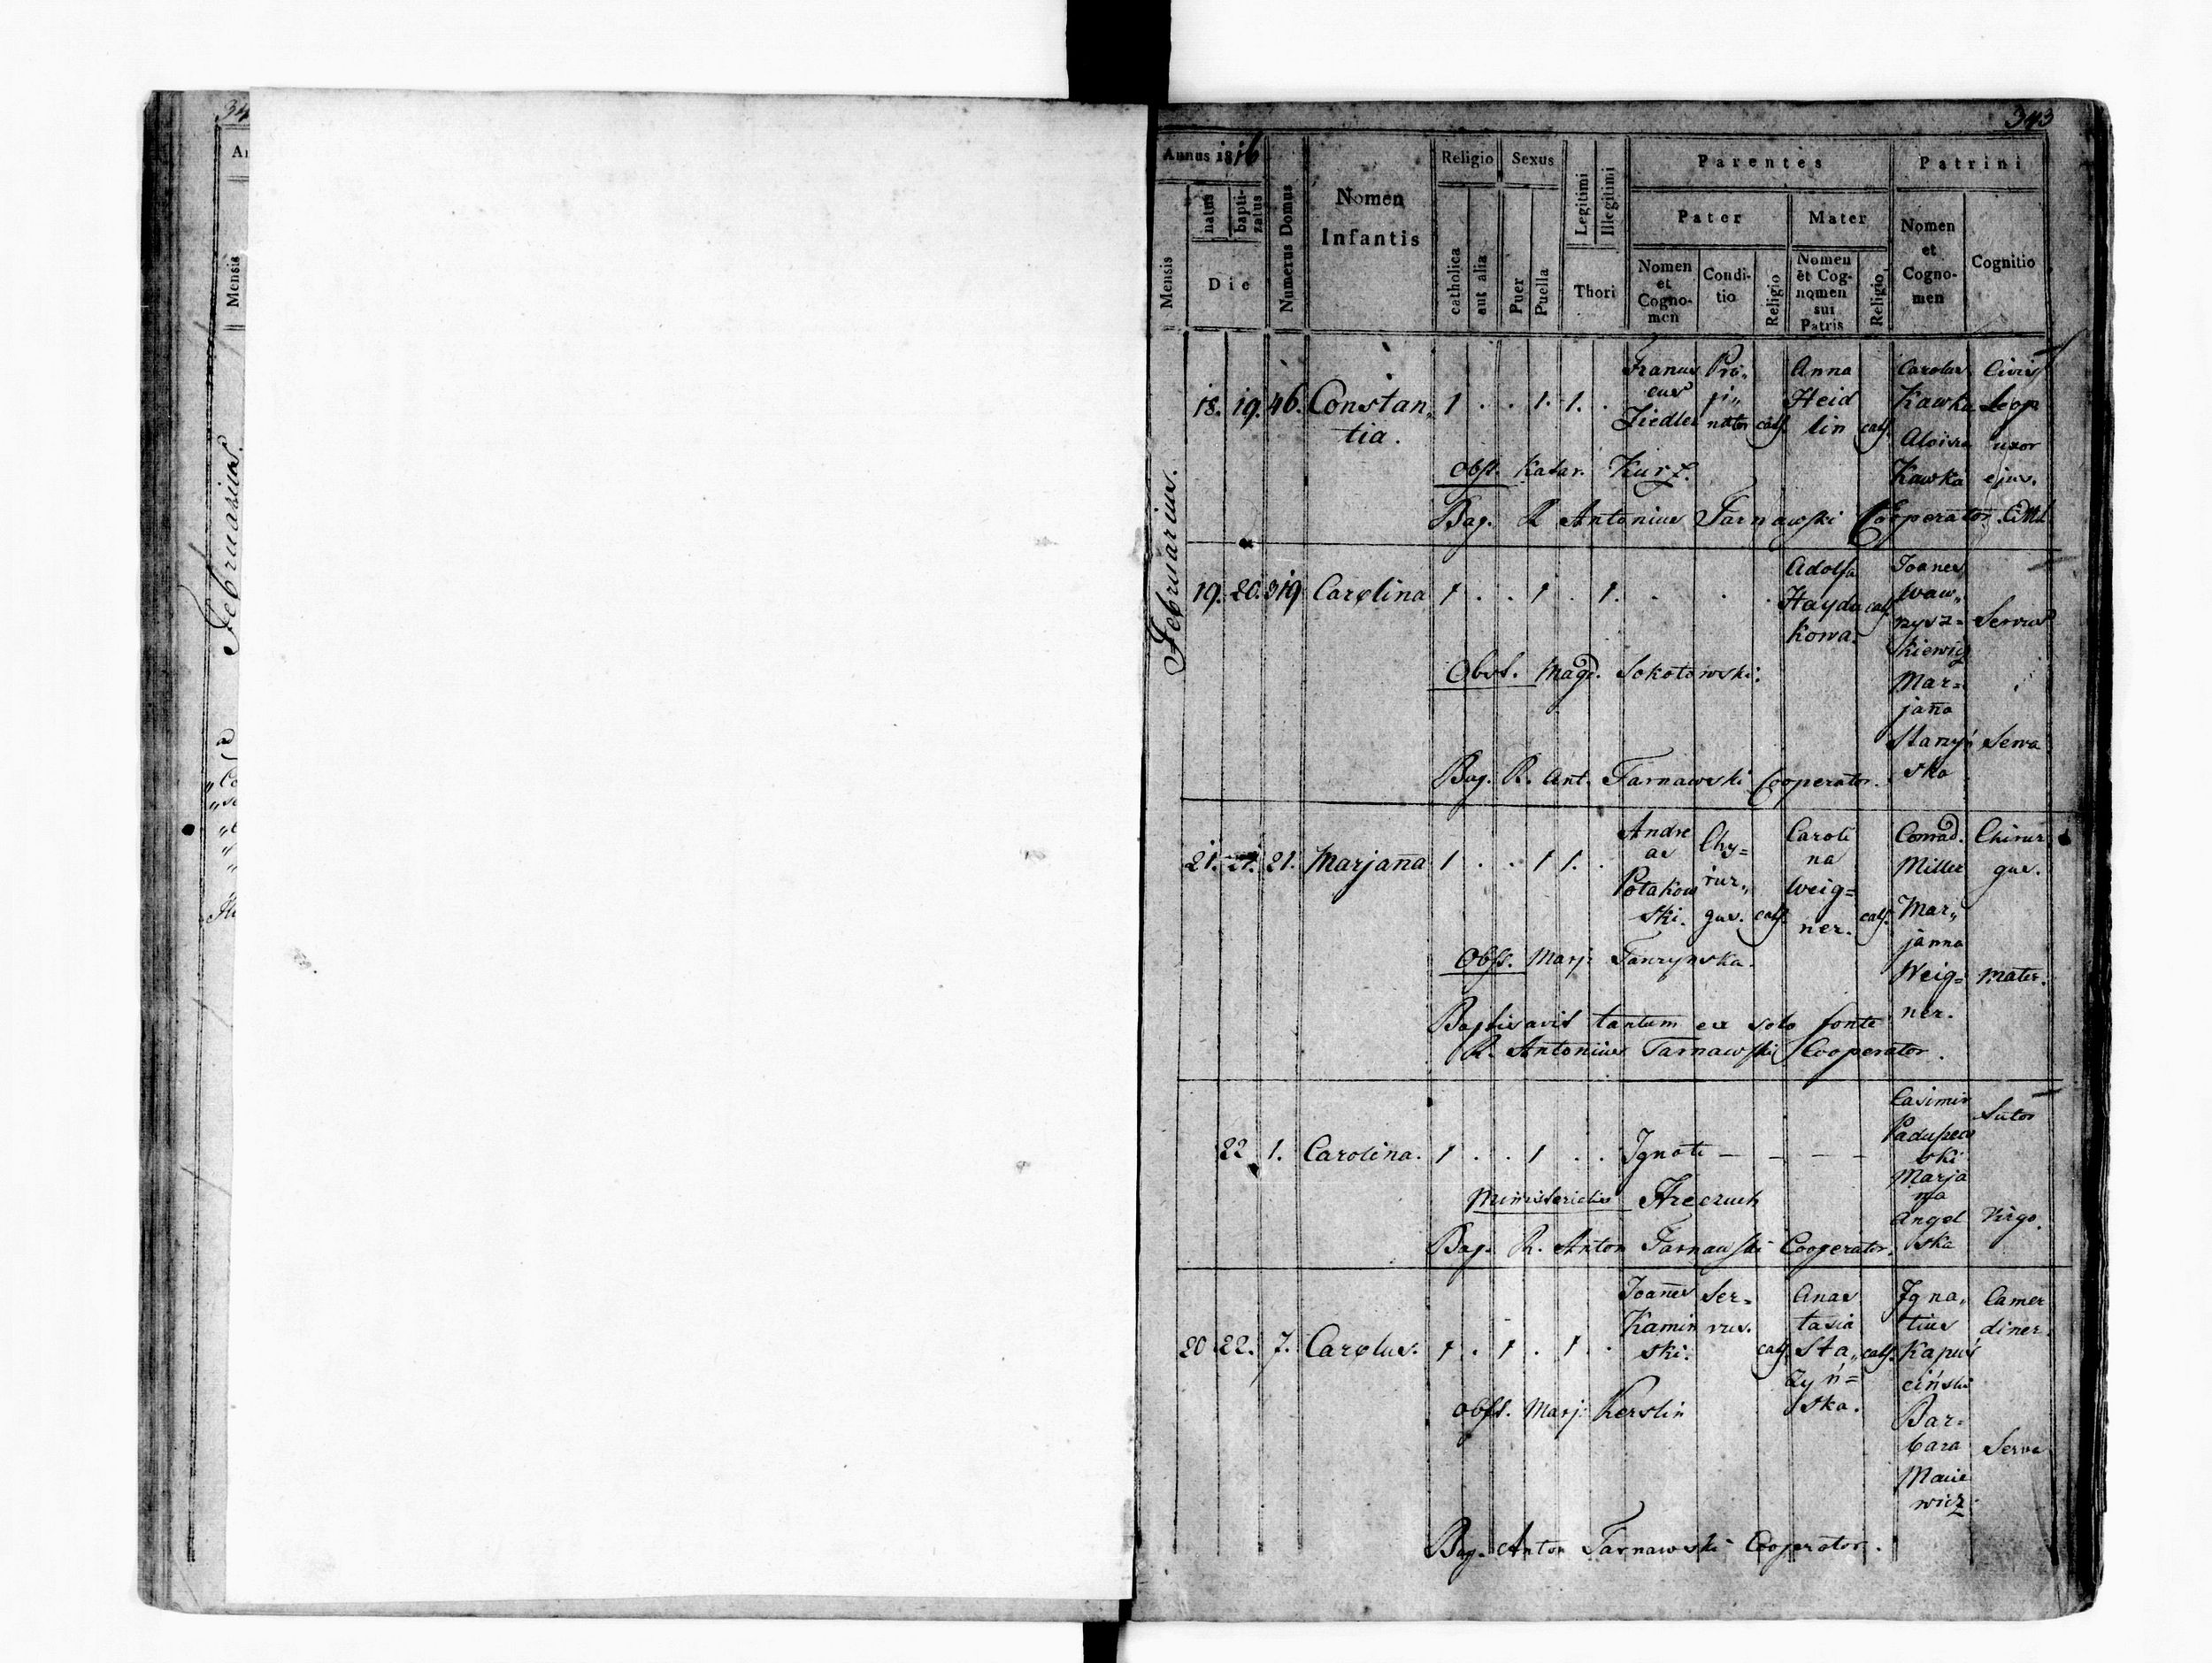 343
Annus 1816
Mensis
natus
bapti-
zatus
Die
Numerus Domus
Nomen
Infantis
Religio
catholica
aut alia
Sexus
Puer
Puella
Legitimi
Illegitimi
Thori
Parentes
Pater
Nomen
et
Cogno-
men
Condi-
tio
Religio
Mater
Nomen
et Cog-
nomen
sui
Patris
Religio
Patrini
Nomen
et
Cogno-
men
Cognitio
Mensis
Februarius.
Februarius.
18. 19. 46. Constan„
tia.
1 . . 1. 1. .
Francis
cus
Ziedler
Pro„
pi„
nator
cath.
Anna
Heid
lin
cath.
Carolus
Kawka
Aloisia
Kawka
Civis
Leop
uxor
ejus.
Obst. Katar. Kurz.
Bap. R Antonius Tarnawski Cooperator.
19. 20. 319 Carolina
1 . . 1 . 1. . . .
Adolfa
Hayda
kowa.
cath.
Joanes
Waw„
rzysz=
kiewicz
Mar=
jana
Starzyń
ska
Servus
Serva
Obst. Magd. Sokołowski.
Bap. R. Ant. Tarnawski Cooperator.
21. 21. 21. Marjana
1 . . 1 1. .
Andre
as
Potakow
ski.
Chy=
rur„
gus.
cath.
Caroli
na
Weig=
ner.
cath.
Conrad.
Miller
Mar„
janna
Weig=
ner.
Chirur
gus.
mater.
Obst. Marj: Tauzynska.
Baptisavit tantum ex solo fonte
R. Antonius Tarnawski Cooperator.
22 1. Carolina.
1 . . 1 . . Ignoti – – – –
Casimir
Padupew
ski
Marja
na
Angel
ska
Sutor
Virgo.
Ministerialis Hreczuch
Bap. R. Anton Tarnawski Cooperator.
20 22. 7. Carolus.
1 . 1 . 1 .
Joanes
Kamin
ski.
Ser=
vus.
cath.
Anas
tasia
Sta„
zyń=
ska.
cath.
Igna„
tius
Kapuś
ciński
Bar=
bara
Macie
wicz.
Camer
diner.
Serva
Obst. Marj: Kerslin
Bap. Anton Tarnawski Cooperator.